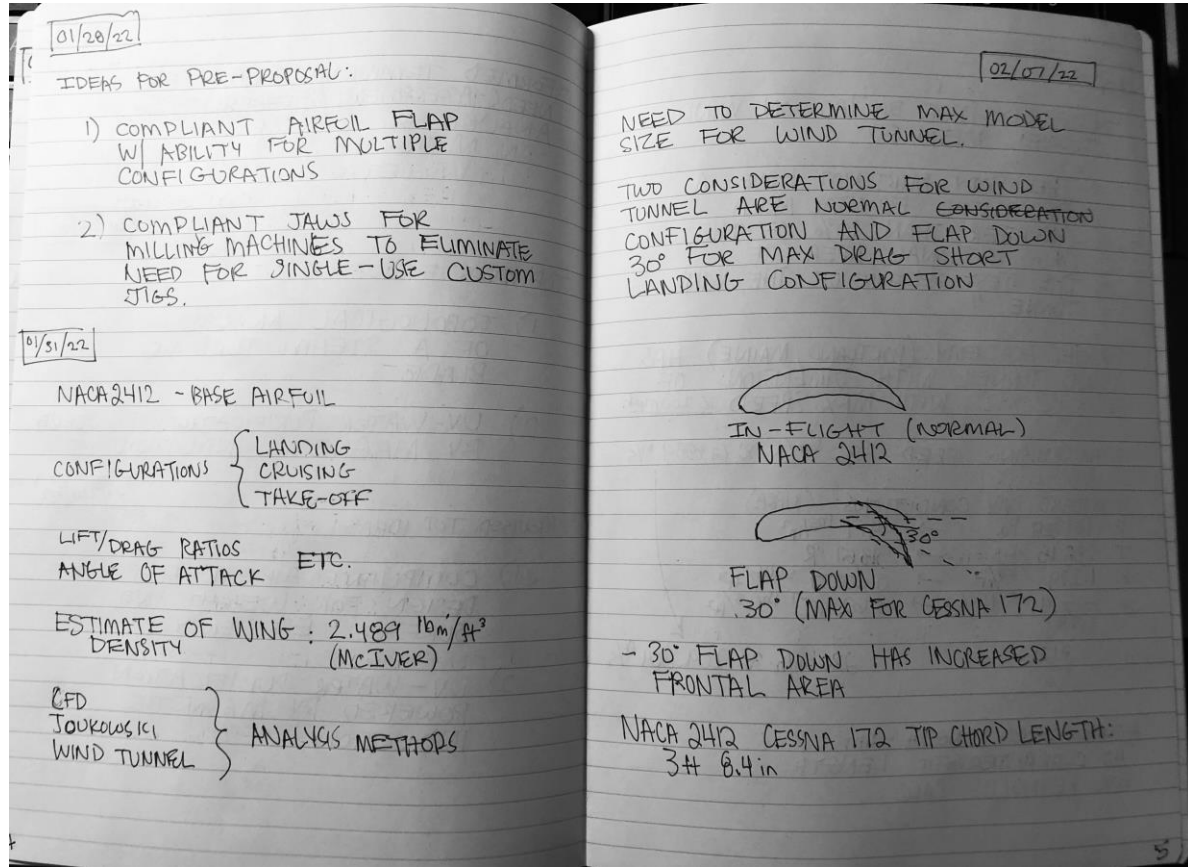 01/28/22
IDEAS FOR PRE-PROPOSAL:
1) COMPLIANT AIRFOIL FLAP
W/ ABILITY FOR MULTIPLE
CONFIGURATIONS
2) COMPLIANT JAWS FOR
MILLING MACHINES TO ELIMINATE
NEED FOR SINGLE-USE CUSTOM
JIGS.
01/31/22
NACA2412 - BASE AIRFOIL
CONFIGURATIONS { LANDING
CRUISING
TAKE-OFF
LIFT/DRAG RATIOS
ANGLE OF ATTACK ETC.
ESTIMATE OF WING : 2.489 lbm/ft³
DENSITY (MCIVER)
CFD
JOUKOWSKI
WIND TUNNEL } ANALYSIS METHODS
02/07/22
NEED TO DETERMINE MAX MODEL
SIZE FOR WIND TUNNEL.
TWO CONSIDERATIONS FOR WIND
TUNNEL ARE NORMAL CONSIDERATION
CONFIGURATION AND FLAP DOWN
30° FOR MAX DRAG SHORT
LANDING CONFIGURATION
IN-FLIGHT (NORMAL)
NACA 2412
30°
FLAP DOWN
30° (MAX FOR CESSNA 172)
- 30° FLAP DOWN HAS INCREASED
FRONTAL AREA
NACA 2412 CESSNA 172 TIP CHORD LENGTH:
3ft 8.4in
5